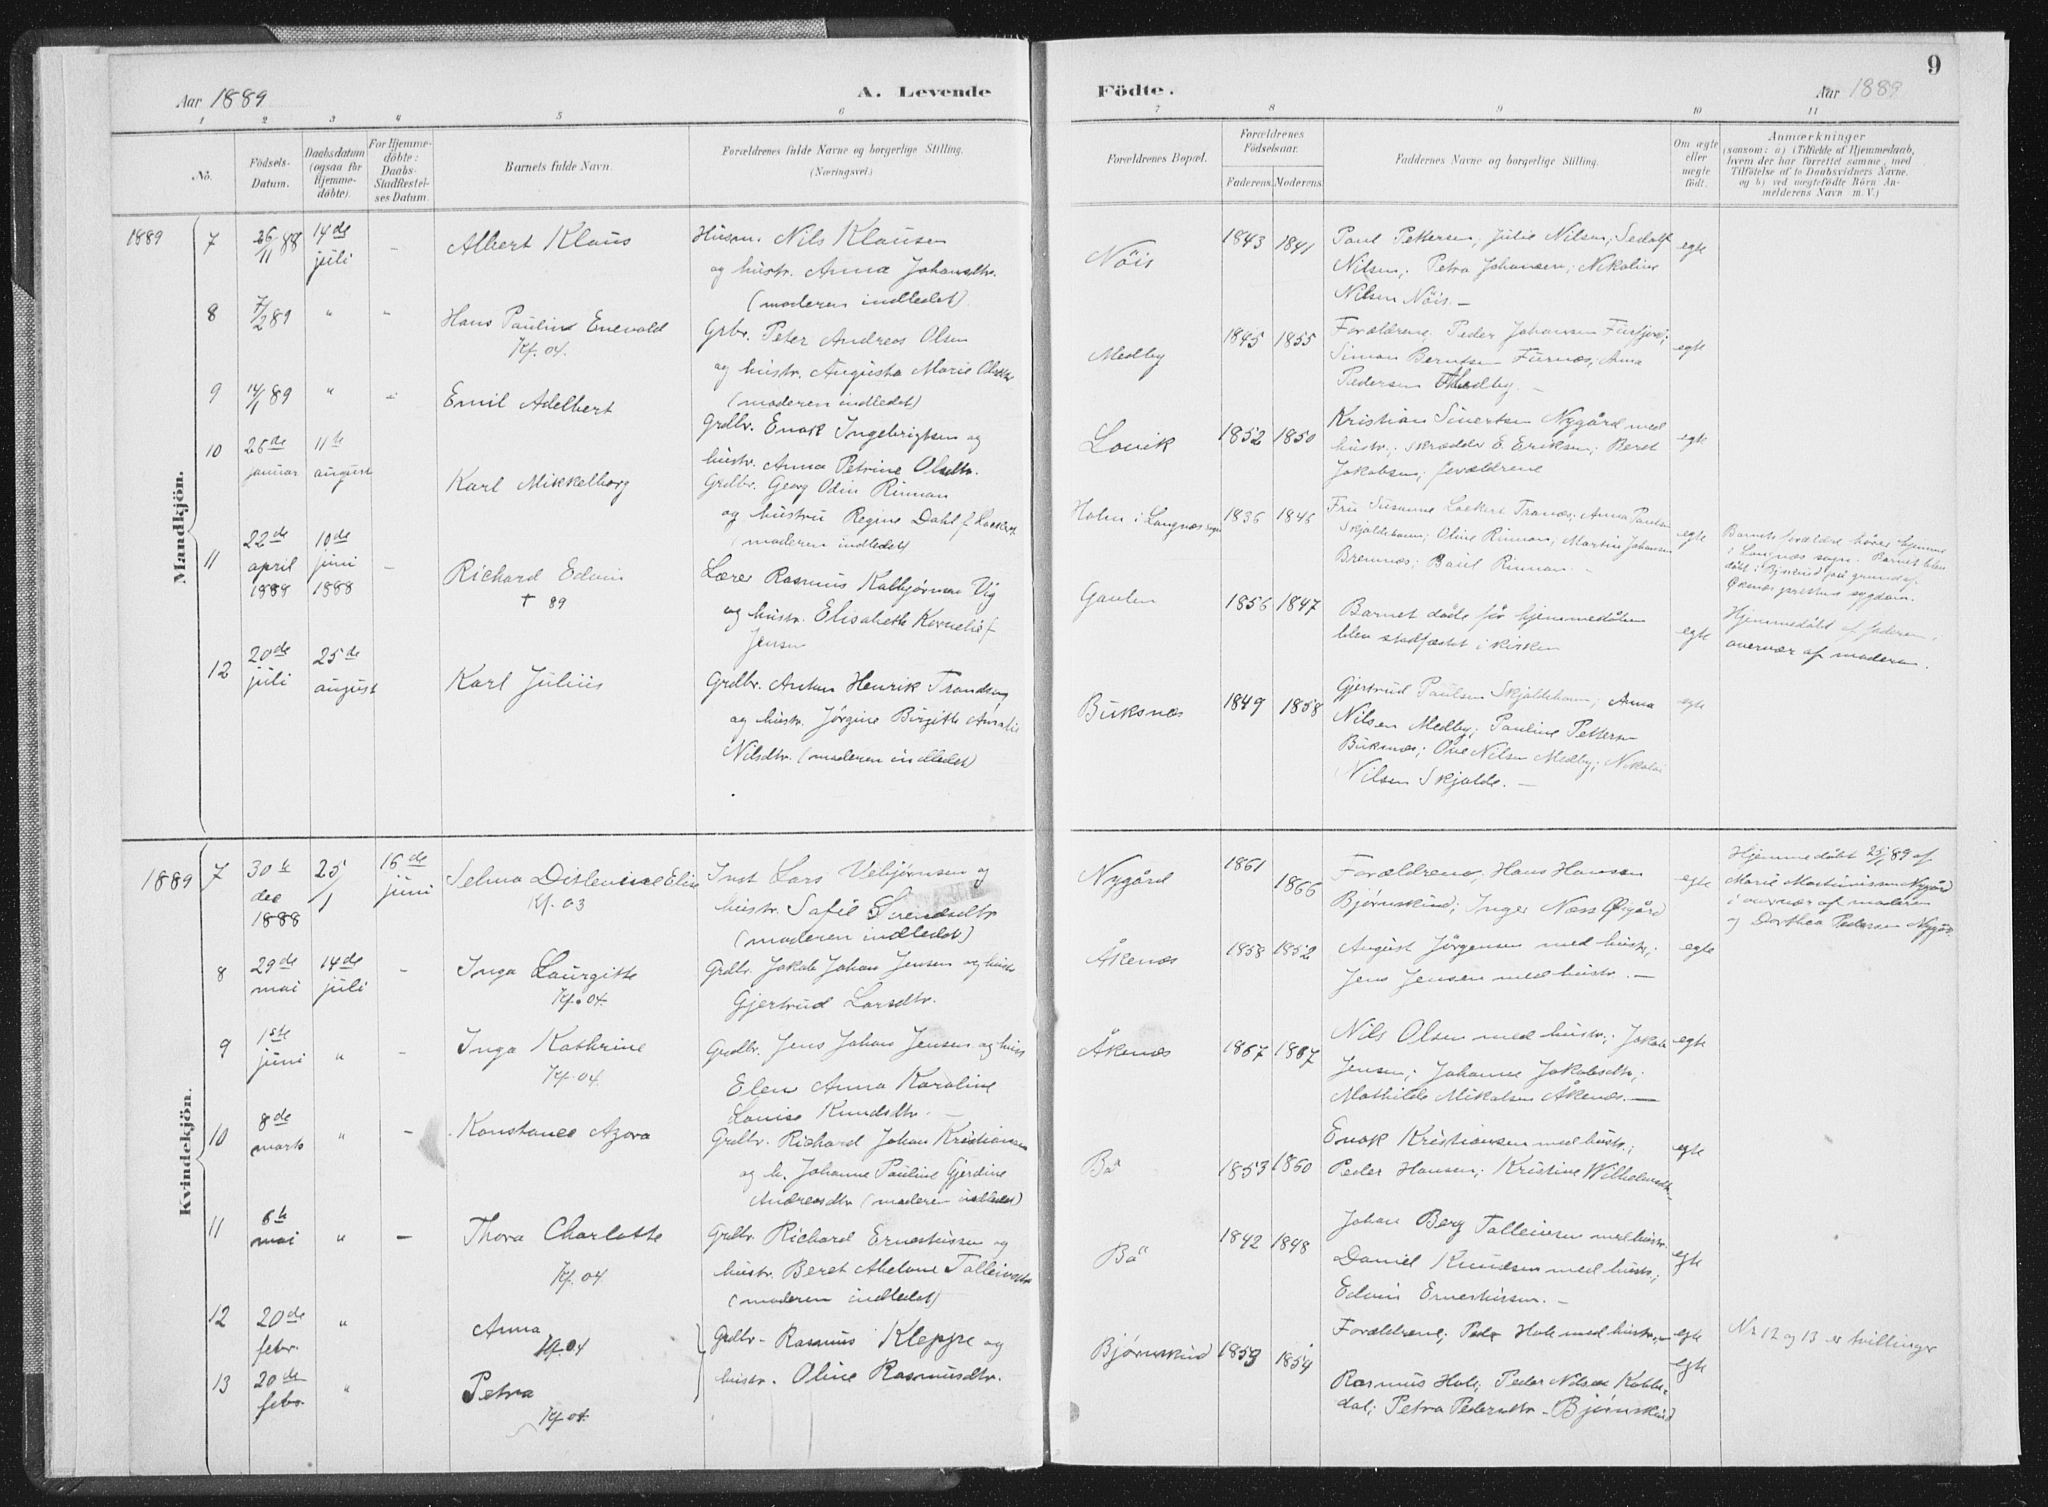 9
Aar 1889 A. Levende Födte. Aar 1889
1 2 3 4 5 6 7 8 9 10 11
No. Födsels-Datum. Daabsdatum (ogsaa for Hjemmedöbte). For Hjemmedöbte: Daabs-Stadfæstelses Datum. Barnets fulde Navn. Forældrenes fulde Navne og borgerlige Stilling. (Næringsvei.) Forældrenes Bopæl. Forældrenes Födselsaar. Faderens Moderens Faddernes Navne og borgerlige Stilling. Om ægte eller uægte födt. Anmærkninger (saasom: a) (Tilfælde af Hjemmedaab, hvem der har forrettet samme, med Tilföielse af to Daabsvidners Navne. og b) ved uægtefödte Börn Anmelderens Navn m. V.)
Mandkjön.
1889 7 26/11 88 14de juli - Albert Klaus
Husm. Nils Klausen
og hustr. Anna Johansdtr.
(moderen indledet)
Nöis 1843 1841
Paul Pettersen; Julie Nilsen; Sedolf
Nilsen; Petra Johansen; Nikoline
Nilsen Nöis. —
egte
8 7/2 89 " - Hans Paulin Enevald
Kf. 04.
Grbr. Peter Andreas Olsen
og hustr. Augusta Marie Olsdtr
(moderen indledet)
Medby 1845 1855
Forældrene; Peder Johansen
Simon Berntsen Furnæs; Anna
Pedersen Medby. —
egte
9 14/1 89 " - Emil Adelbert
Grdbr. Enok Ingebrigtsen og
hustr. Anna Petrine Olsdtr.
Lovik 1852 1850
Kristian Sivertsen Nygård med
hustr; skrædder E. Eriksen; Beret
Jakobsen; forældrene
egte
10 26de januar 11te august Karl Mikkelborg
Grdbr. Georg Odin Rinnan
og hustru Regine Dahl f. Lockert
(moderen indledet)
Holm i Langnæs sogn 1836 1846
Fru Susanne Lockert Tranæs; Anna Paulsen
Skjoldehamn; Oline Rinnan; Martin Johansen
Bremnæs; Paul Rinnan. -
egte
Barnets forældre hører hjemme
i Langnæs sogn. Barnet blev
døbt i Bjørnskind på grund af
Øksnesprestens sygdom.
11 22de april 1889 10de juni 1888 - Richard Edvin
† 89
Lærer Rasmus Kolbjørnsen Vig
og hustr. Elisabeth Kornelie f.
Jensen
Gavlen 1856 1847
Barnet døde før hjemmedåben
blev stadfæstet i kirken
egte
Hjemmedåbt af faderen i
overvær af moderen.
12 20de juli 25de august Karl Juliüs
Grdbr. Anton Henrik Trondsen
og hustr. Jörgine Birgitte Amalie
Nilsdtr. (moderen indledet)
Buksnæs 1849 1858
Gjertrud Paulsen Skjoldehamn; Anna
Nilsen Medby; Pauline Pettersen
Buksnæs; Ole Nilsen Medby; Nikolai
Nilsen Skjolde. —
egte
Kvindekjön.
1889 7 30te dec 1888 25/1 16de juni Selma Ditlevine Elise
Kf. 03
Inst Lars Vebjørnsen og
hustr. Sofie Svendsdtr
(moderen indledet)
Nygård 1861 1866
Forældrene; Hans Hansen
Bjørnskind; Inger Næss Øigård
egte
Hjemmedåbt 25/1 89 af
Marie Martinussen Nygård
i overvær af moderen
og Dorthea Pedersen Nygår.
8 29de mai 14de juli - Inga Laurgitte
Kf. 04.
Grdbr. Jakob Johan Jensen og hustr
Gjertrud Larsdtr.
Åkenæs 1858 1852
August Jörgensen med hustr.;
Jens Jensen med hustr. —
egte
9 1ste juni " - Inga Kathrine
Kf. 04.
Grdbr. Jens Johan Jensen og hust
Elen Anna Karoline
Lovise Knudsdtr. —
Åkenæs 1867 1867
Nils Olsen med hustr.; Jakob
Jensen; Johanne Jakobsdtr.;
Mathilde Mikalsen Åkenæs. —
egte
10 8de marts " - Konstance Azora
Grdbr. Richard Johan Kristiansen
og h. Johanne Pauline Gjerdine
Andreasdtr (moderen indledet)
Bø 1853 1860
Enok Kristiansen med hustr.;
Peder Hansen; Kristine Wilhelmsdtr.
egte
11 6te mai " - Thora Charlotte
Kf. 04
Grdbr. Richard Ernestussen og
hustr. Beret Abelone Tolleivsdtr
(moderen indledet)
Bö 1842 1848
Johan Berg Tolleivsen med hustr.
Daniel Knudsen med hustr.;
Edvin Ernestussen. —
egte
12 20de febr. " Anna
Kf. 04
Grdbr. Rasmus Kleppe og
hustr. Oline Rasmusdtr.
Bjørnskind 1853 1854
Forældrene; Peder Hole med hustr.
egte
No 12 og 13 er tvillinger
13 20de febr. " Petra
Kf. 04.
Rasmus Hole; Peder Nilsen Kobbe-
dal; Petra Pedersdtr. Bjørnskind
egte